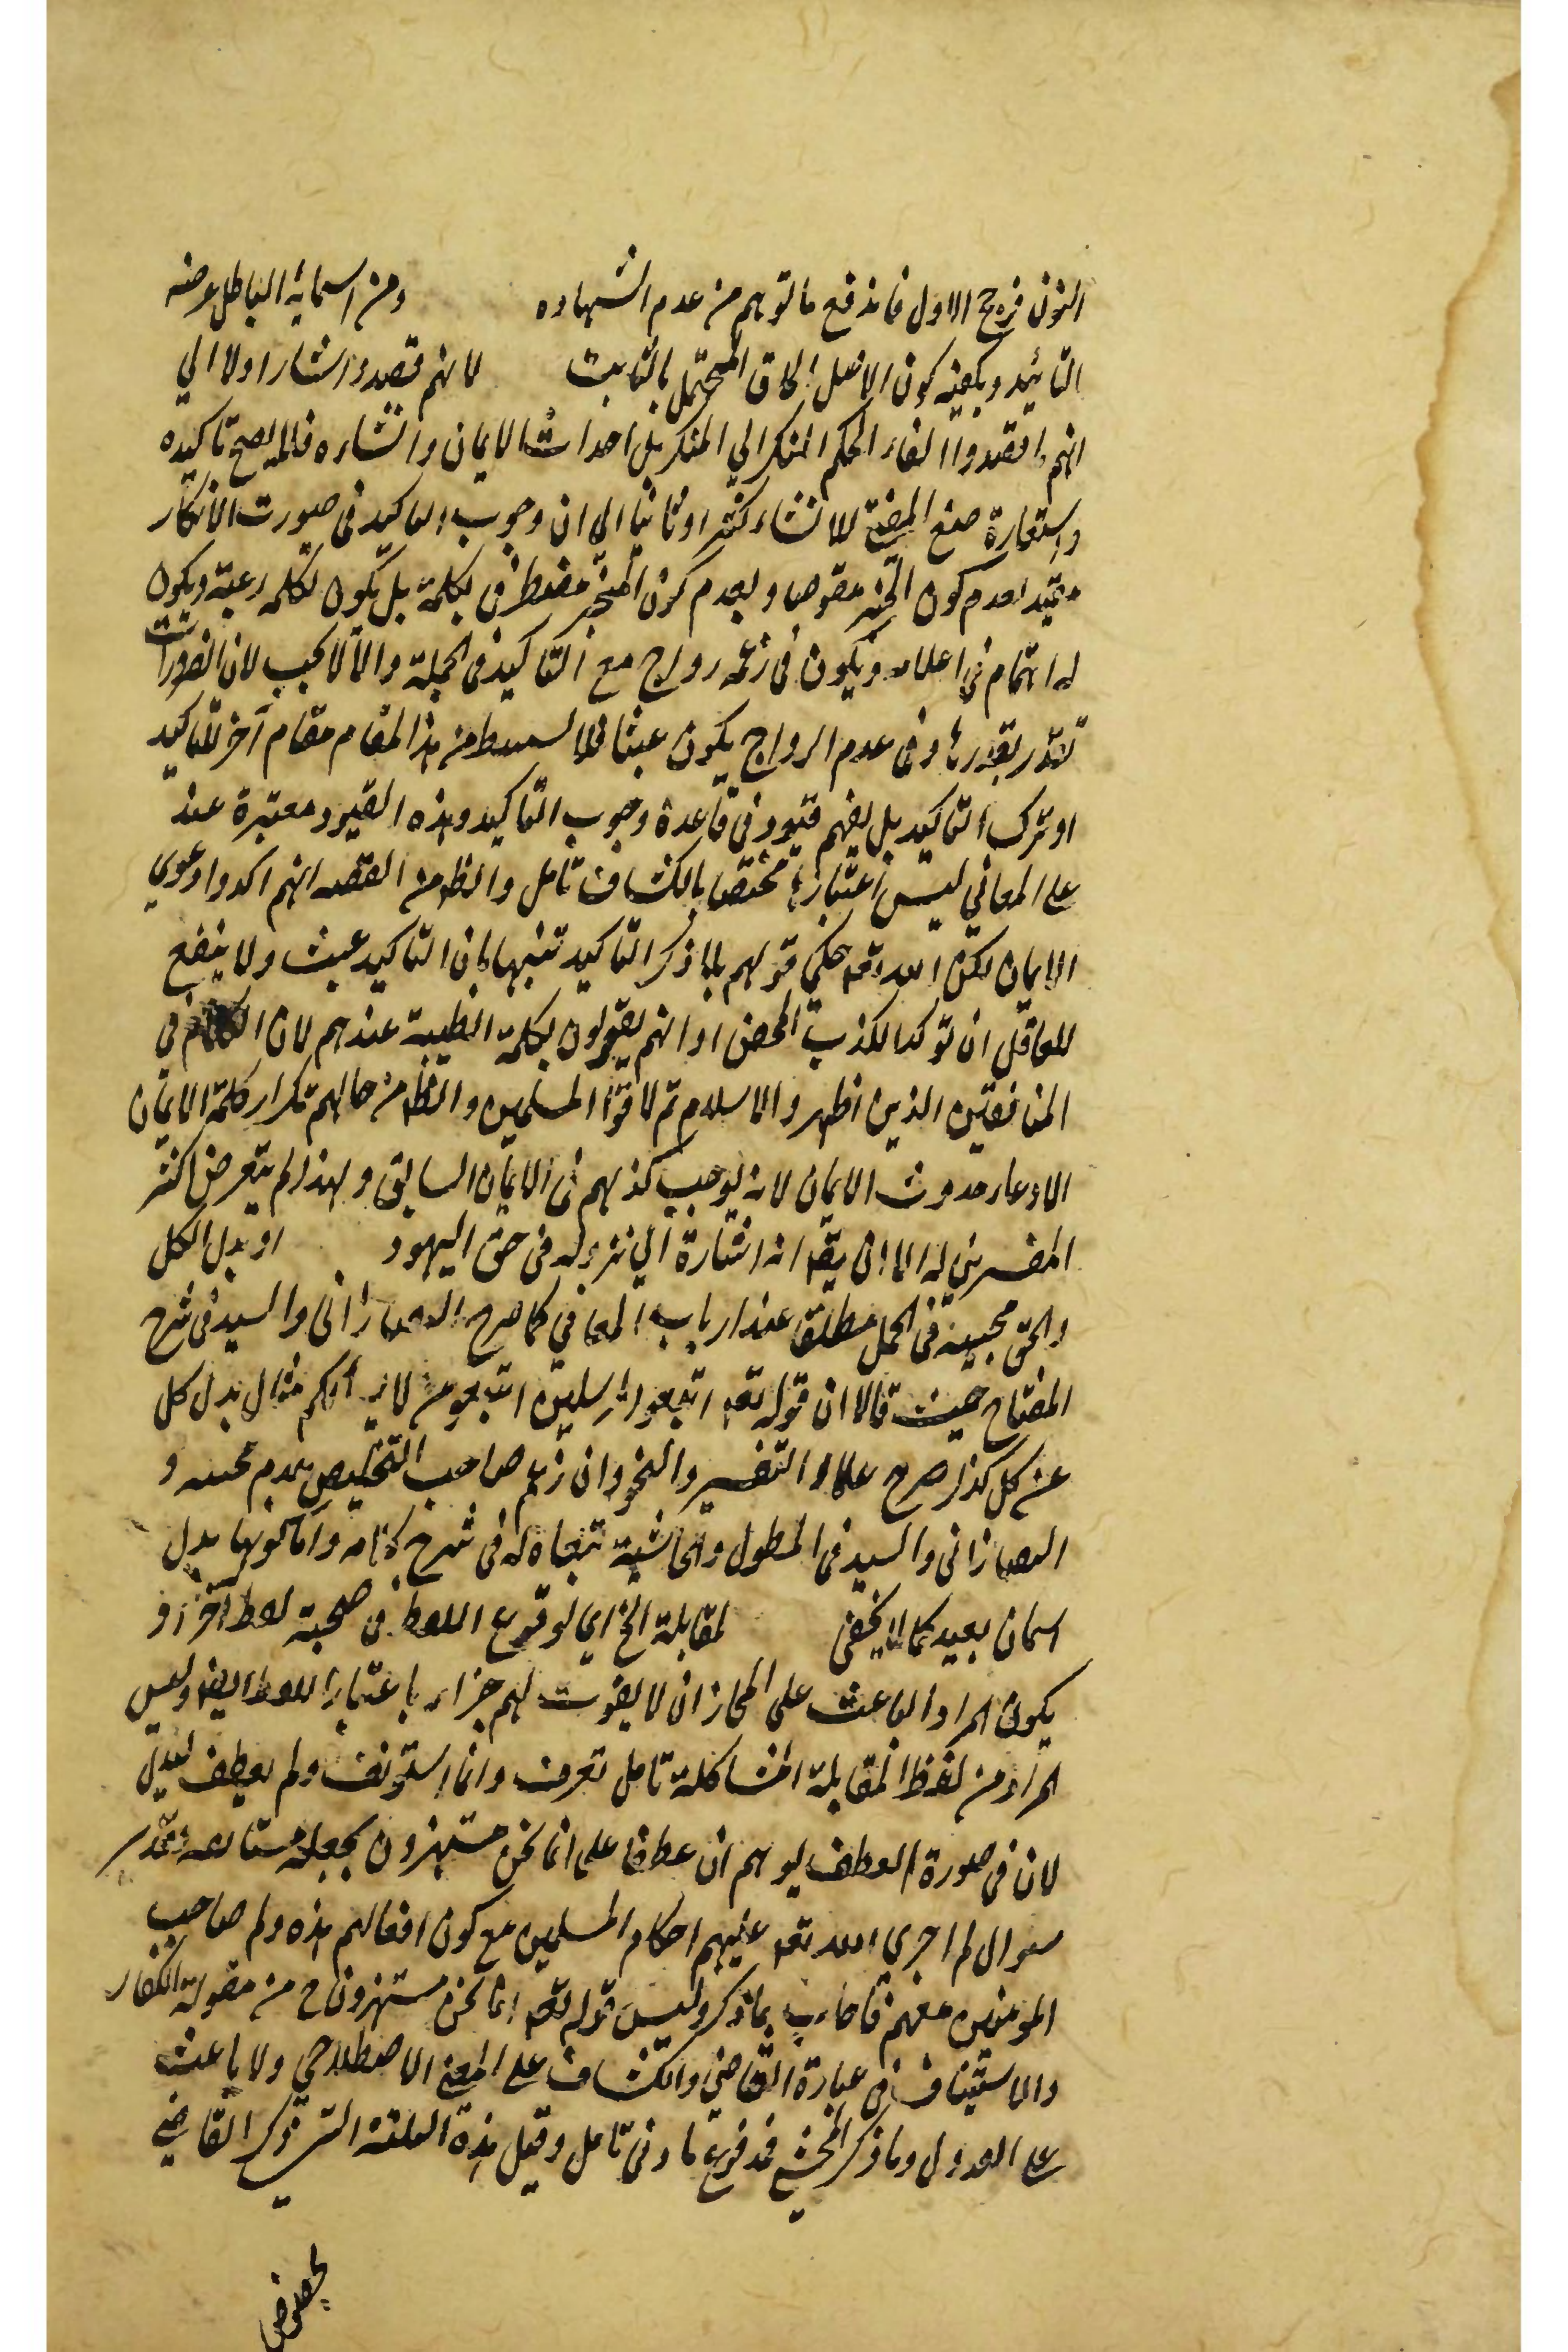 النون فرجح الاول فاندفع ما توهم من عدم الشهاده ومن اسمايه الباطل غرضه
التائيد ويكفيه كون الاصل الحاق المحتمل بالثابت لانهم قصدوا اشار اولا الي
انهم ما قصدوا القاء الحكم المنكر الي المنكر بل احداث الايمان وانشاءه فلا يصح تاكيده
واستعارة صيغ للانشاء كثير وثانيا الي ان وجوب التاكيد في صورت الانكار
مقيد بعدم كون الخبر وبعدم كون المخبر مضطرا في تكلمه بل يكون لكلمه رغبة ويكون
له اهتمام في اعلامه ويكون في زعمه رواج مع التاكيد في الجملة والا لا يجب لان الضرورات
تتقدر بقدرها وفي عدم الرواج يكون عبثا فلا من هذا المقام مقام آخر للتاكيد
او ترك التاكيد بل يفهم قيود في قاعدة وجوب التاكيد وهذه القيود معتبرة عند
علماء المعاني ليس اعتبارها مختصا بالكشاف تامل والظ من القصه انهم اكدوا دعوي
الايمان لكن الله تعه حكي قولهم بلا ذكر التاكيد تنبيها بان التاكيد عبث ولا ينفع
للعاقل ان توكد الكذب المحض او انهم يقولون بكلمة الطيبة عندهم لان الكلام في
المنافقين الذين اظهروا الاسلام ثم لاقوا المسلمين والظ من حالهم تكرار كلمة الايمان
الادعاء حدوث الايمان لانه يوجب كذبهم في الايمان السابق ولهذا لم يتعرض اكثر
المفسرين له الا ان يقه انه اشارة الي نزوله في حق اليهود او بدل الكل
والحق مجيئه في الجمل مطلقا عند ارباب المعاني كما صرح التفتازاني والسيد في شرح
المفتاح حيث قالا ان قوله تعه اتبعوا المرسلين اتبعوا من لا يسألكم مثال بدل كل
عن كل كذا صرح علماء التفسير والنحو وان زعم صاحب التخليص بعدم مجيئه و
التفتازاني والسيد في المطول والحاشية تبعاه له في شرح كلامه واما كونها بدل
اشتمال بعيد كما لا يخفي لمقابلة الخ اي لوقوع اللفظ في صحبة لفظ آخر او
يكون المراد الباعث علي المجاز ان لا يفوت لهم جزاء باعتبار اللفظ ايضا وليس
المراد من لفظ المقابلة المشاكلة تامل تعرف وانما استونف ولم يعطف
لان في صورة العطف يوهم ان عطفا علي انما نحن مستهزون بجعله مقدر
سوال لم اجري الله تعه عليهم احكام المسلمين مع كون افعالهم هذه ولم صاحب
المومنين معهم فاجاب بما ذكر وليس قوله تعه انما نحن مستهزون ح من مقولة الكفار
والاستيناف في عبارة القاضي والكشاف علي المعني الاصطلاحي ولا باعث
علي العدول وما ذكر المحشي فمدفوع بادني تامل وقيل هذه التي ذكر القاضي